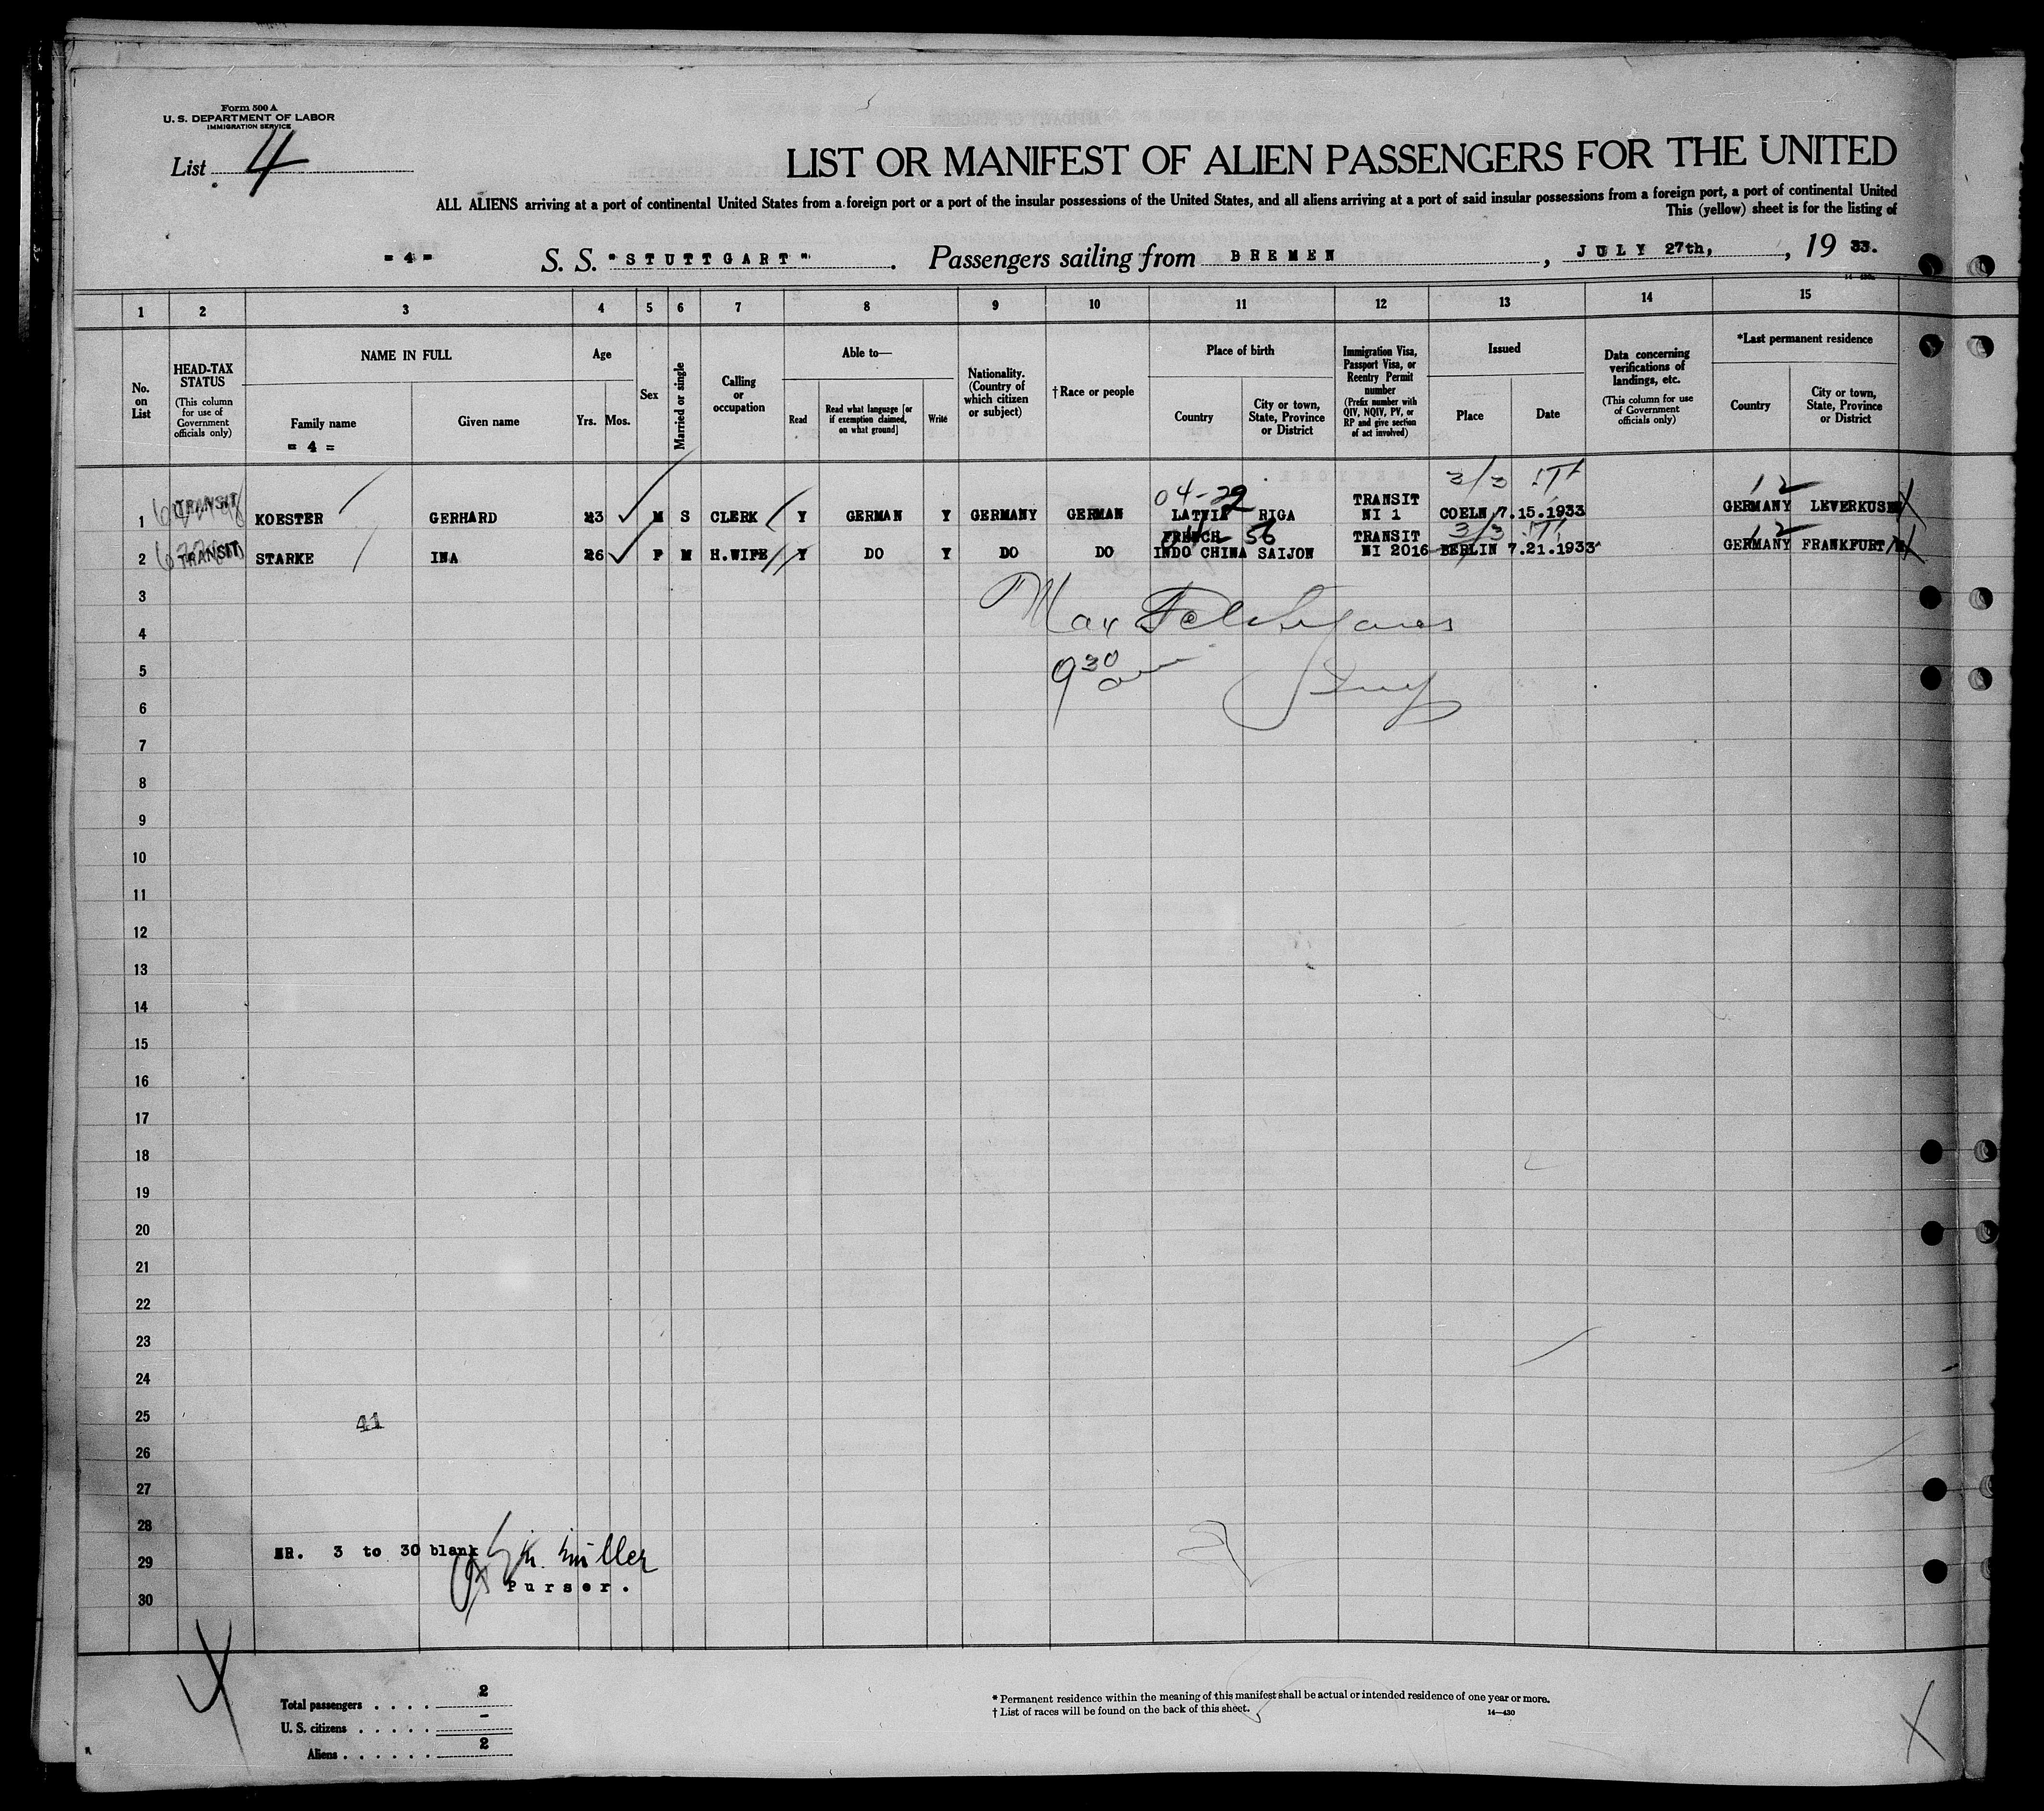 Form 500 A
U. S. DEPARTMENT OF LABOR
IMMIGRATION SERVICE
List 4
LIST OR MANIFEST OF ALIEN PASSENGERS FOR THE UNITED
ALL ALIENS arriving at a port of continental United States from a foreign port or a port of the insular possessions of the United States, and all aliens arriving at a port of said insular possessions from a foreign port, a port of continental United
This (yellow) sheet is for the listing of
= 4 = S. S. "STUTTGART". Passengers sailing from BREMEN, JULY 27th, , 19 33.
1 2 3 4 5 6 7 8 9 10 11 12 13 14 15
No. on List
HEAD-TAX STATUS (This column for use of Government officials only)
NAME IN FULL
Family name
= 4 =
Given name
Age
Yrs. Mos.
Sex
Married or single
Calling or occupation
Able to—
Read
Read what language [or if exemption claimed, on what ground]
Write
Nationality. (Country of which citizen or subject)
† Race or people
Place of birth
Country
City or town, State, Province or District
Immigration Visa, Passport Visa, or Reentry Permit number (Prefix number with QIV, NQIV, PV, or RP and give section of act involved)
Issued
Place
Date
Data concerning verifications of landings, etc. (This column for use of Government officials only)
*Last permanent residence
Country
City or town, State, Province or District
04-22 3/3 12
1 TRANSIT KOESTER GERHARD 23 M S CLERK Y GERMAN Y GERMANY GERMAN LATVIA RIGA TRANSIT NI 1 COELN 7.15.1933 GERMANY LEVERKUSEN
56 3/3 12
2 TRANSIT STARKE INA 26 F M H.WIFE Y DO Y DO DO FRENCH INDO CHINA SAIJON TRANSIT NI 2016 BERLIN 7.21.1933 GERMANY FRANKFURT/M
3
Max
4
9 30
5
6
7
8
9
10
11
12
13
14
15
16
17
18
19
20
21
22
23
24
25 41
26
27
28
NR. 3 to 30 blank Müller
29
Purser.
30
Total passengers . . . . 2
U. S. citizens . . . . . -
Aliens . . . . . . 2
* Permanent residence within the meaning of this manifest shall be actual or intended residence of one year or more.
† List of races will be found on the back of this sheet.
14—430